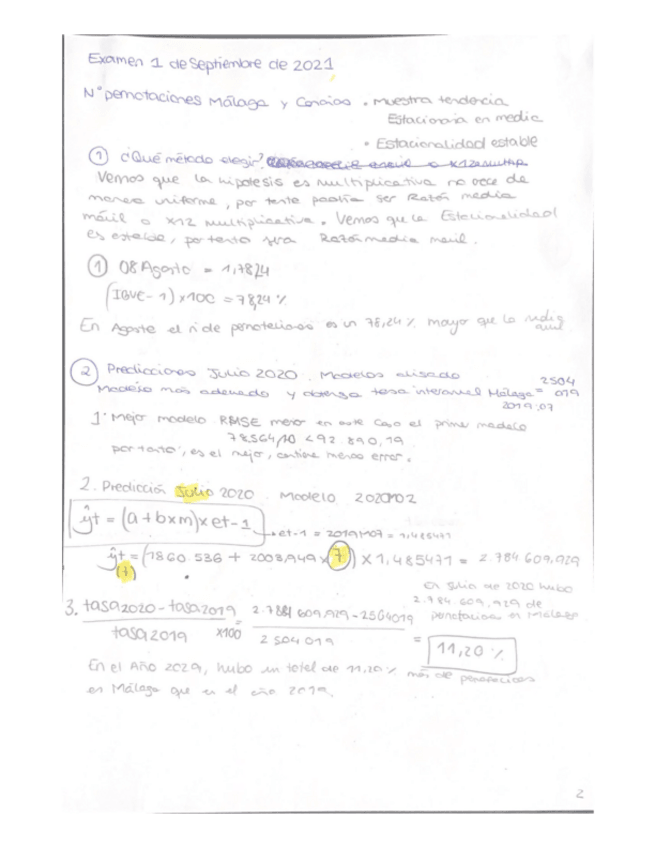 Examen 1 de Septiembre de 2021
Nº pernotaciones Málaga y Canarias • Muestra tendencia
Estacionaria en media
• Estacionalidad estable
① ¿Qué método elegir?
Vemos que la hipótesis es multiplicativa no crece de
manera uniforme, por tanto podría ser Razón media
móvil o x12 multiplicativa. Vemos que la Estacionalidad
es estable, por tanto será Razón media movil.
① 08 Agosto = 1,7824
(IBVE-1)×100 = 78,24 %
En Agosto el nº de pernotaciones es un 78,24% mayor que la media
anual
② Predicciones Julio 2020. Modelos alisado
Modelo más adecuado y obtenga tasa interanual Málaga = 2504 019
2019:07
1º Mejor modelo RMSE menor en este caso el primer modelo
78564,10 < 92.890,19
por tanto, es el mejor, contiene menos error.
2. Predicción Julio 2020 Modelo 2020M02
ŷt = (a+b×m)×et-1
→ et-1 = 2019M07 = 1,485471
ŷt = (1860.536 + 2003,949×7) × 1,485471 = 2.784 609,929
(7)
En Julio de 2020 hubo
2.784.609,929 de
pernotaciones en Málaga
3. tasa2020 - tasa2019 / tasa2019 ×100 = 2.784 609,929 - 2504019 / 2 504 019 = 11,20 %
En el Año 2029, hubo un total de 11,20 % más de pernotaciones
en Málaga que en el año 2019.
2